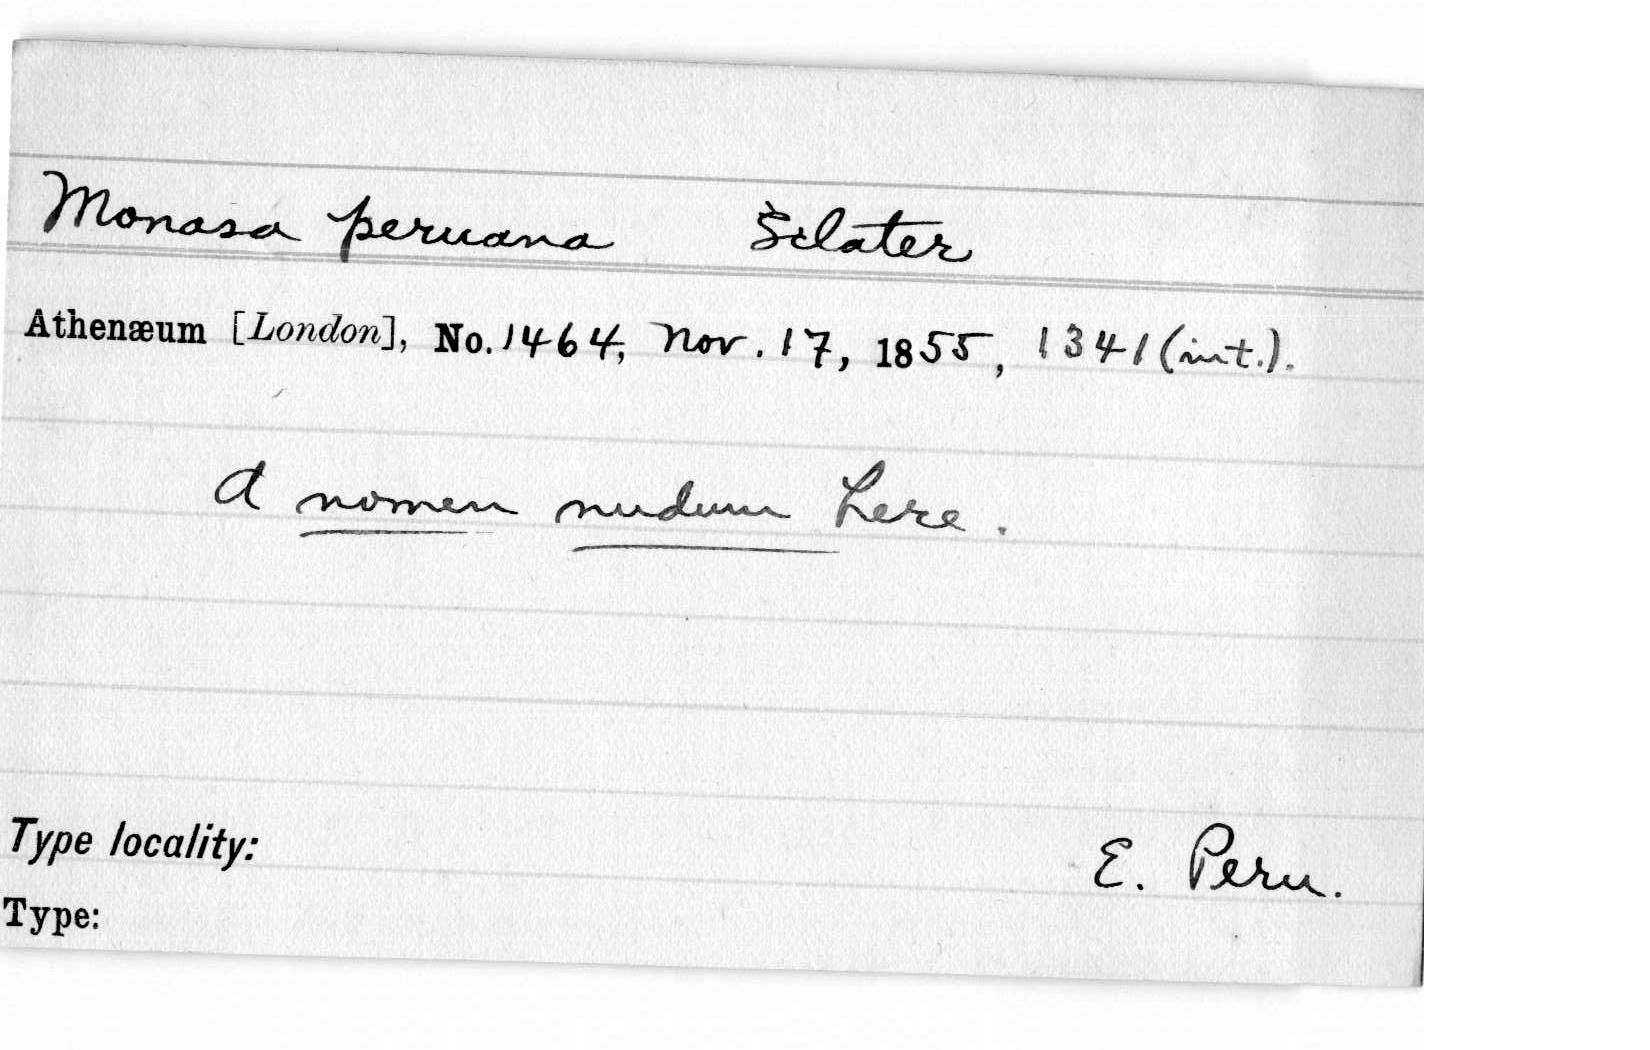 Monasa peruana Sclater
Athenæum [London], No. 1464, Nov. 17, 1855, 1341 (int.).
A nomen nudum here.
Type locality: E. Peru.
Type: